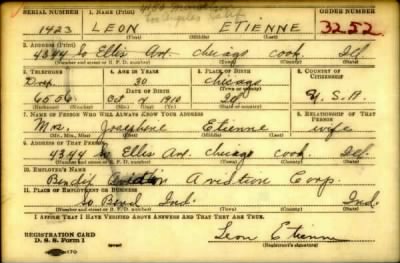 SERIAL NUMBER 1. NAME (Print) ORDER NUMBER
Los Angeles Calif.
1423 LEON ETIENNE 3252
(First) (Middle) (Last)
2. ADDRESS (Print)
4344 So Ellis Ave. chicago cook. Ill.
(Number and street or R. F. D. number) (Town) (County) (State)
3. TELEPHONE 4. AGE IN YEARS 5. PLACE OF BIRTH 6. COUNTRY OF CITIZENSHIP
30 Chicago
DATE OF BIRTH
6506 Oct 1910 Ill U.S.A.
(Exchange) (Number) (Mo.) (Day) (Yr.) (State or country)
7. NAME OF PERSON WHO WILL ALWAYS KNOW YOUR ADDRESS 8. RELATIONSHIP OF THAT PERSON
Mrs. Josephine Etienne wife
(Mr., Mrs., Miss) (First) (Middle) (Last)
9. ADDRESS OF THAT PERSON
4344 So Ellis Ave. chicago cook. Ill.
(Number and street or R. F. D. number) (Town) (County) (State)
10. EMPLOYER'S NAME
Bendix Aviation Corp.
11. PLACE OF EMPLOYMENT OR BUSINESS
So Bend Ind. Ind.
(Number and street or R. F. D. number) (Town) (County) (State)
I AFFIRM THAT I HAVE VERIFIED ABOVE ANSWERS AND THAT THEY ARE TRUE.
REGISTRATION CARD
D. S. S. Form 1 Leon Etienne
(Registrant's signature)